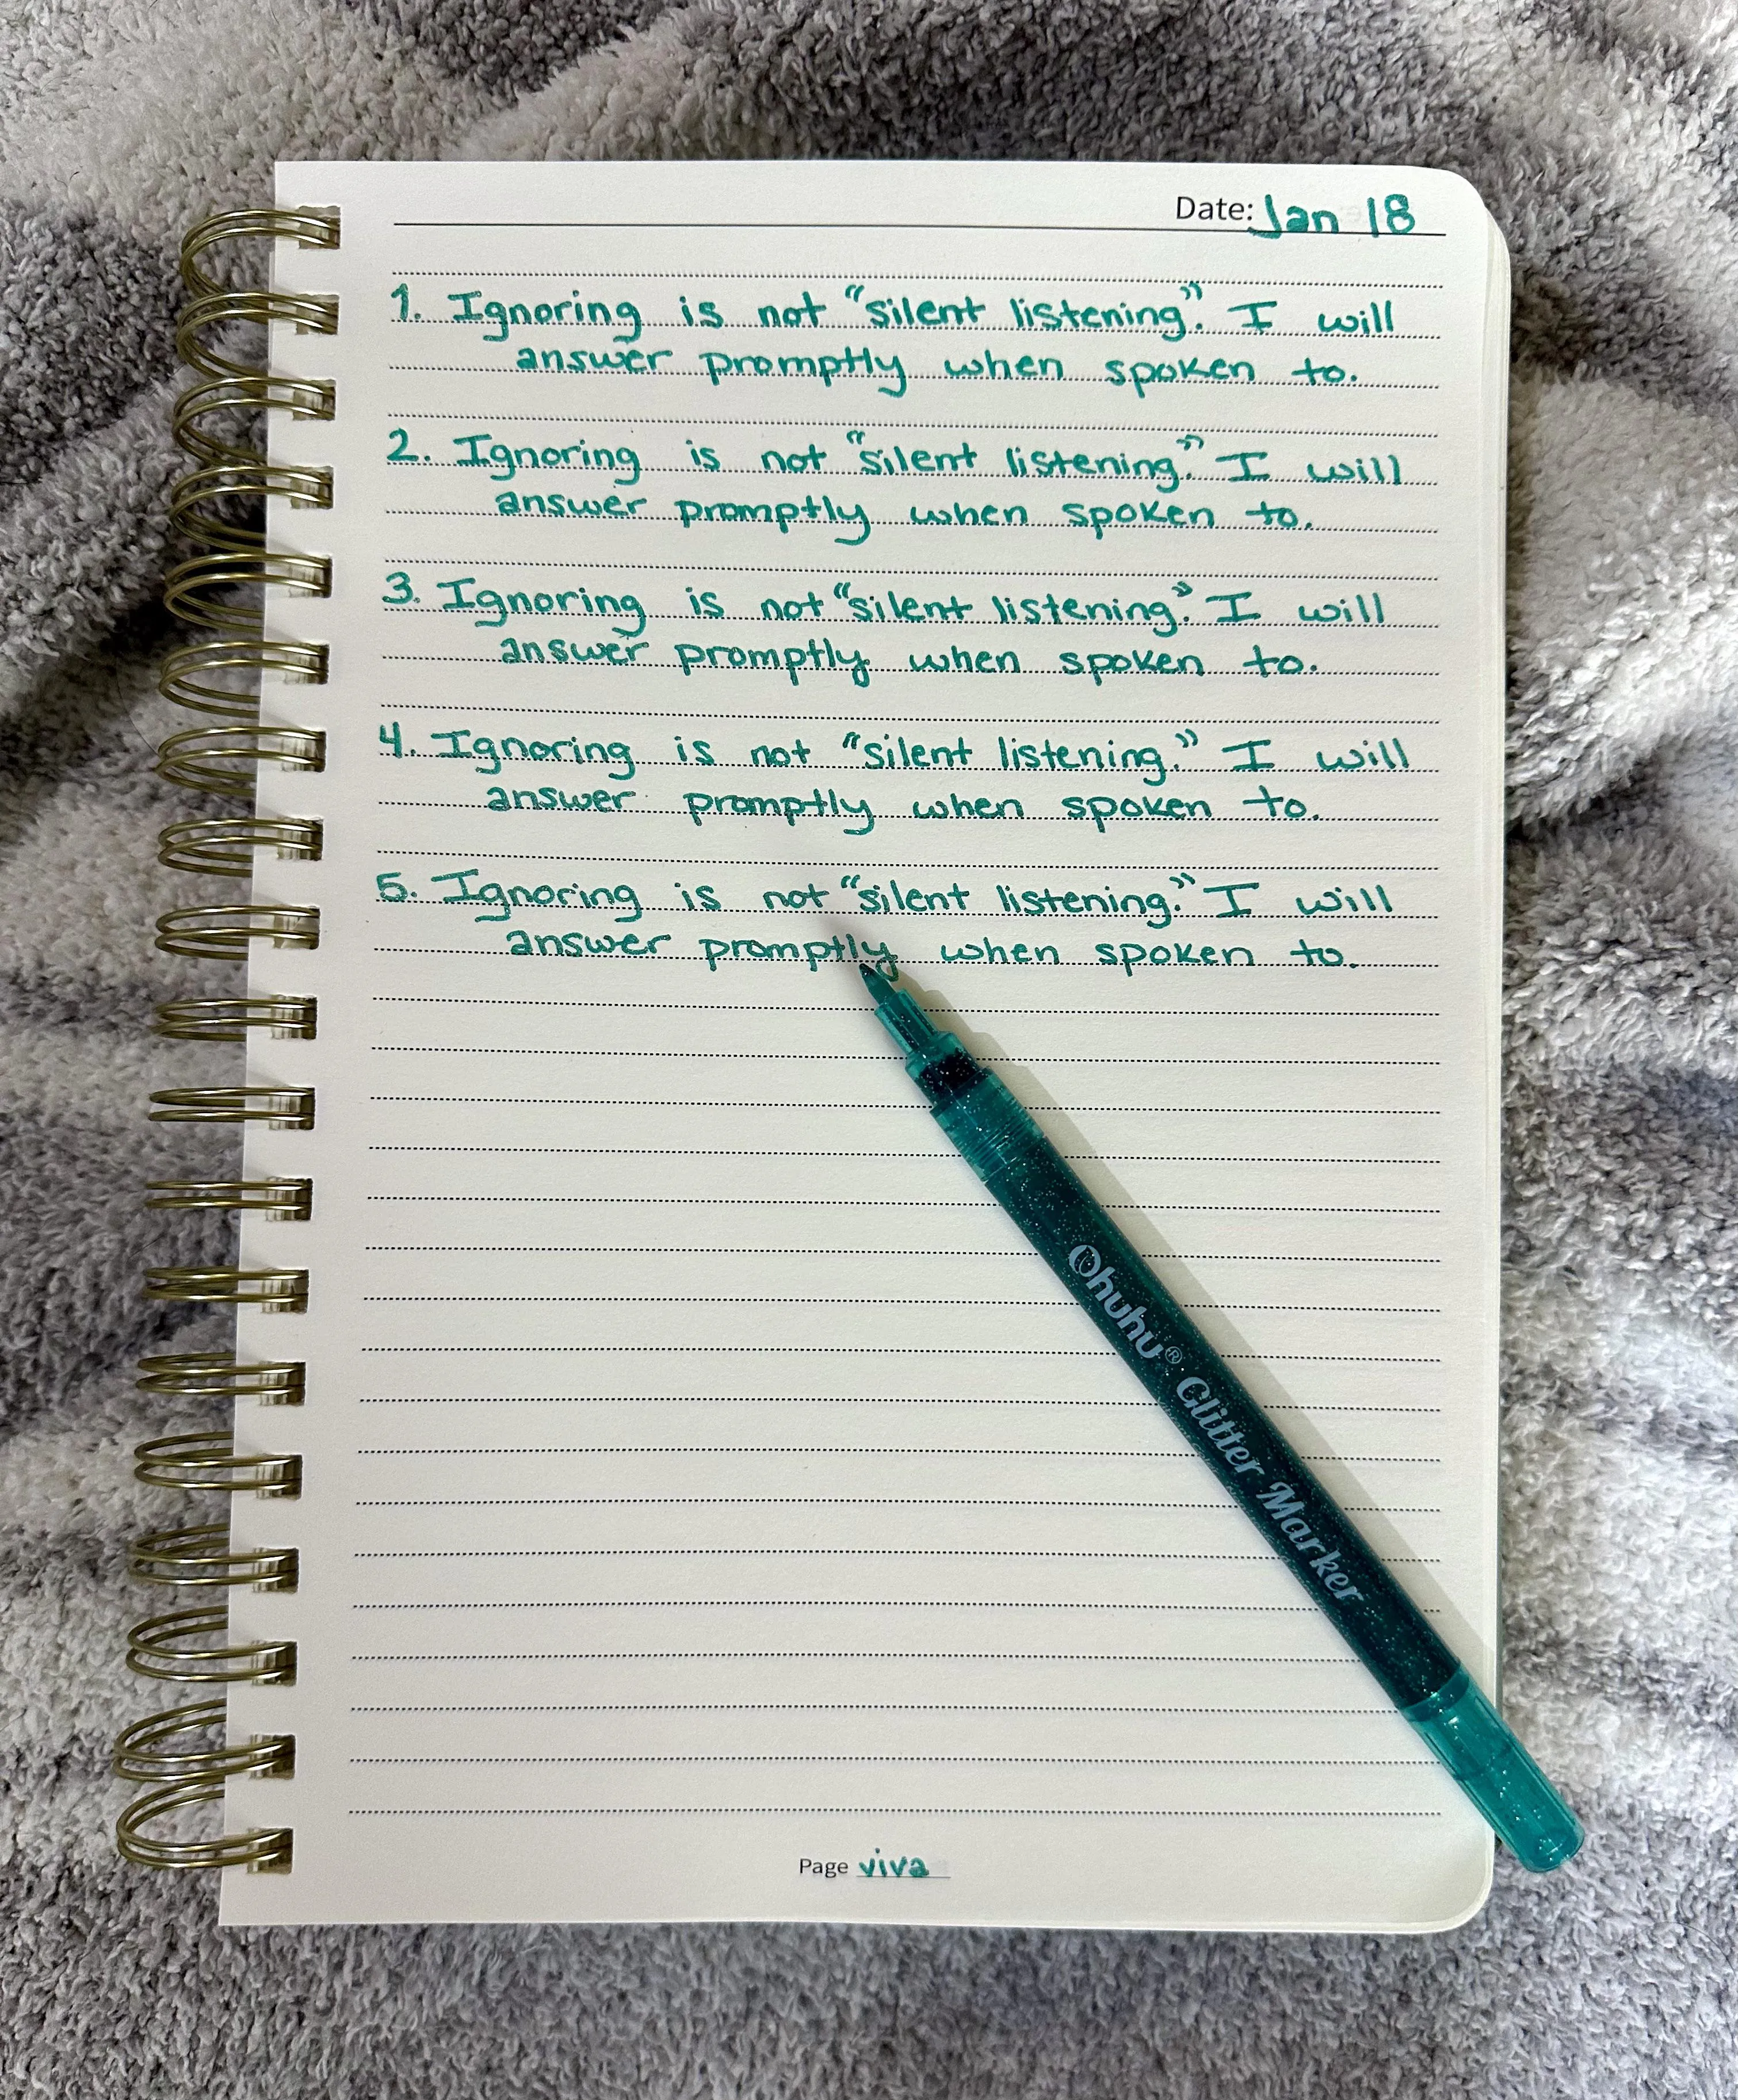 Date: Jan 18
1. Ignoring is not "silent listening". I will
answer promptly when spoken to.
2. Ignoring is not "silent listening." I will
answer promptly when spoken to.
3. Ignoring is not "silent listening." I will
answer promptly when spoken to.
4. Ignoring is not "silent listening." I will
answer promptly when spoken to.
5. Ignoring is not "silent listening." I will
answer promptly when spoken to.
Ohuhu® Glitter Marker
Page viva